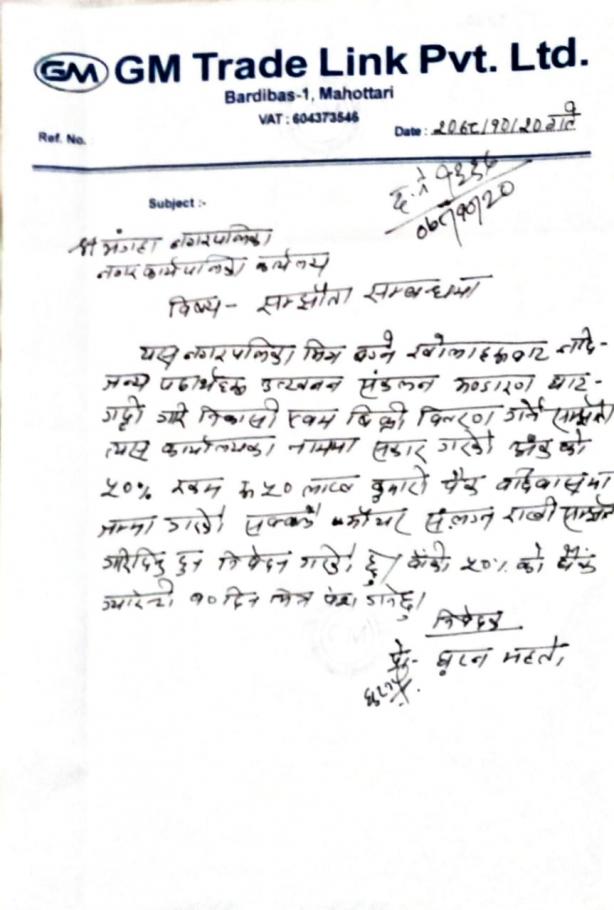 GM GM Trade Link Pvt. Ltd.
Bardibas-1, Mahottari
VAT : 604373546
Ref. No.
Date : २०७८/१०/२० गते
Subject :-
द.नं १३३६
०७८/१०/२०
श्री भंगाहा नगरपालिका
नगर कार्यपालिका कार्यालय
विषय - सम्झौता सम्बन्धमा
यस नगरपालिका भित्र बग्ने खोलाहरुबाट नदि-
जन्य पदार्थहरु उत्खनन संकलन भण्डारण घाट-
गद्दी गरि निकासी एवम बिक्री वितरण गर्ने सम्झौता
त्यस कार्यालयका नाममा गरेको अंक को
५०% रकम रु ५० लाख चेक
जम्मा गरेको सक्कलै भौचर संलग्न राखी सम्झौता
गरिदिनु हुन निवेदन गरेको छु। बाँकी ५०% को बैंक
ग्यारेन्टी १० दिन भित्र पेश गर्नेछु।
निवेदक
प्रो- घुरन महतो